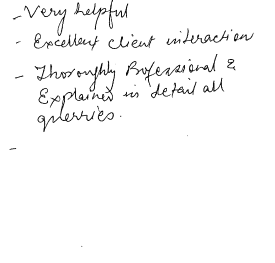 - Very helpful
- Excellent client interaction
- Thoroughly Professional &
Explained in detail all
querries.
-